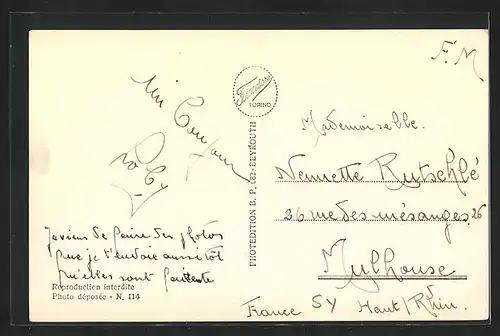 F. M
un Bonjour
Roby
Ferrania
TORINO
PHOTEDITION B. P. 182 - BEYROUTH
Mademoiselle.
Nennette Rutschlé
26 rue des mésanges 26
Mulhouse
France Sy Haut/Rhin.
Je viens de faire des photos
que je t'envoie aussitôt
qu'elles sont
Reproduction interdite
Photo déposée - N. 114